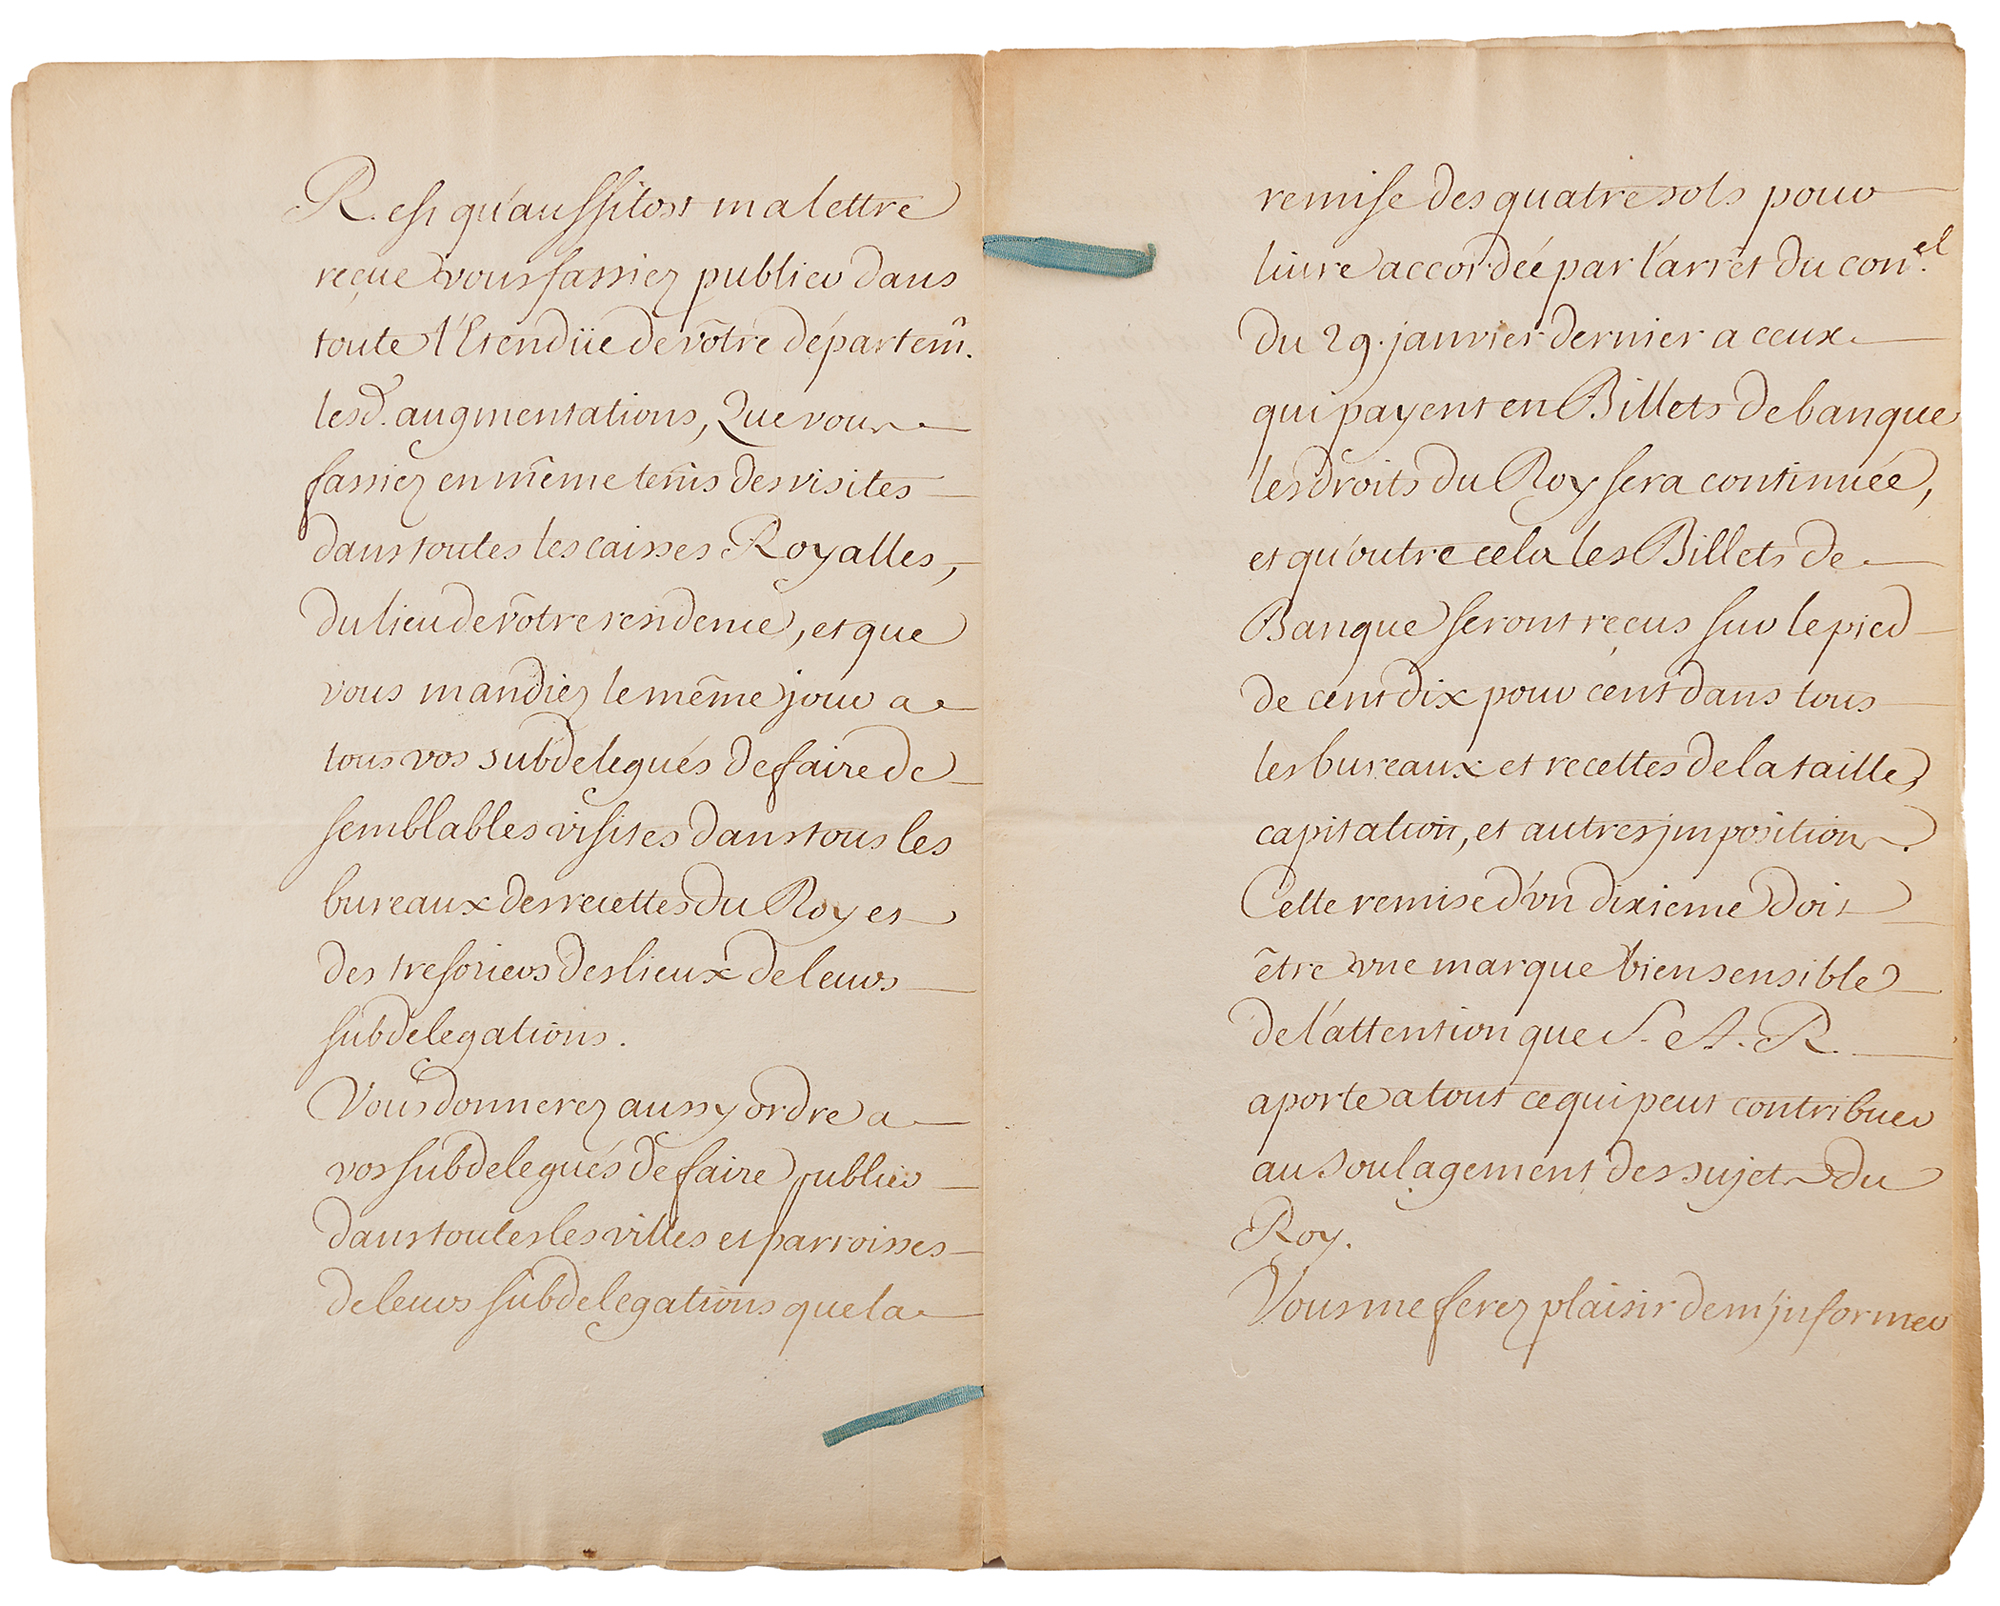 R. est qu'aussitost ma lettre
reçue vous fassiez publier dans
toute l'Etendüe de vôtre départem̂.
lesd. augmentations, Que vous
fassiez en même tems des visites
dans toutes les caisses Royalles,
du lieu de vôtre residence, et que
vous mandiez le même jour a
tous vos subdelegués de faire de
semblables visites dans tous les
bureaux des recettes du Roy et
des tresoriers des lieux de leurs
subdelegations.
Vous donnerez aussy ordre a
vos subdelegués de faire publier
dans toutes les villes et parroisses
de leurs subdelegations que la
remise des quatre sols pour
livre accordée par l'arrêt du con.el
du 29. janvier dernier a ceux
qui payent en Billets de banque
les droits du Roy sera continuée,
et qu'outre cela les Billets de
Banque seront reçus sur le pied
de cent dix pour cent dans tous
les bureaux et recettes de la taille,
capitation, et autres jmpositions.
Cette remise d'vn dixieme doit
être vne marque bien sensible
de l'attention que S. A. R.
aporte a tout ce qui peut contribuer
au soulagement des sujets du
Roy.
Vous me ferez plaisir de m'jnformer